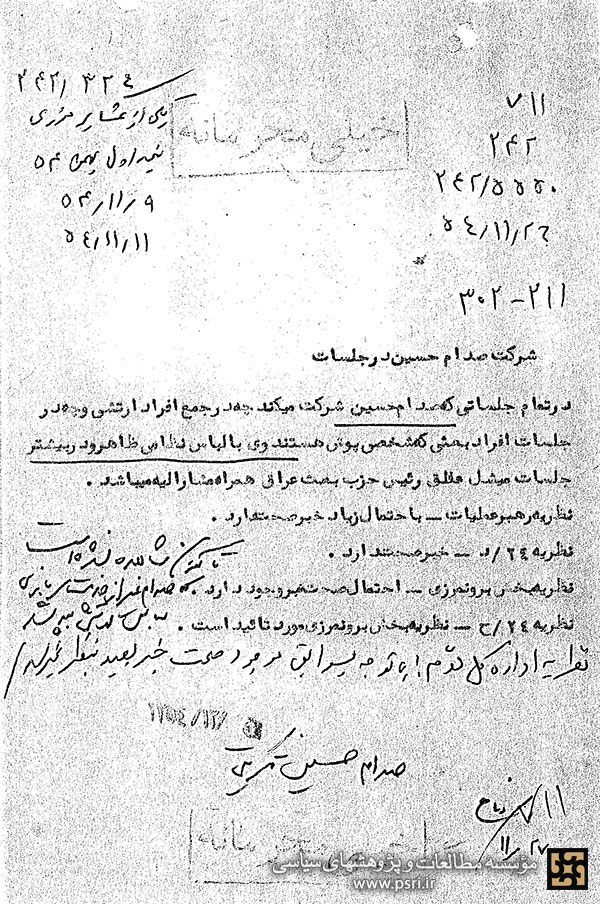 خیلی محرمانه
۷۱۱
۲۴۲
۲۴۲/۵۵۵۰
۵۴/۱۱/۲۶
۳۰۲-۲۱۱
۲۴۲/۳۲۴
یکی از عشایر مرزی
نیمه اول بهمن ۵۴
۵۴/۱۱/۹
۵۴/۱۱/۱۱
شرکت صدام حسین در جلسات
در تمام جلساتی که صدام حسین شرکت میکند چه در جمع افراد ارتشی و چه در
جلسات افراد بعثی که شخصی پوش هستند وی با لباس نظامی ظاهر و در بیشتر
جلسات میشل عفلق رئیس حزب بعث عراق همراه مشارالیه میباشد .
نظریه رهبر عملیات – باحتمال زیاد خبر صحت دارد .
نظریه ۲۴/د – خبر صحت دارد .
نظریه بخش برونمرزی – احتمال صحت خبر وجود دارد .
نظریه ۲۴/ح – نظریه بخش برونمرزی مورد تائید است .
تاکنون مشاهده نشده است
که صدام غیر از
نظریه اداره کل دوم : با توجه بسوابق موجود صحت خبر بعید بنظر نمیرسد
صدام حسین تکریتی
۱۱
۱۱/۲۷
خیلی محرمانه
مؤسسه مطالعات و پژوهشهای سیاسی
www.psri.ir